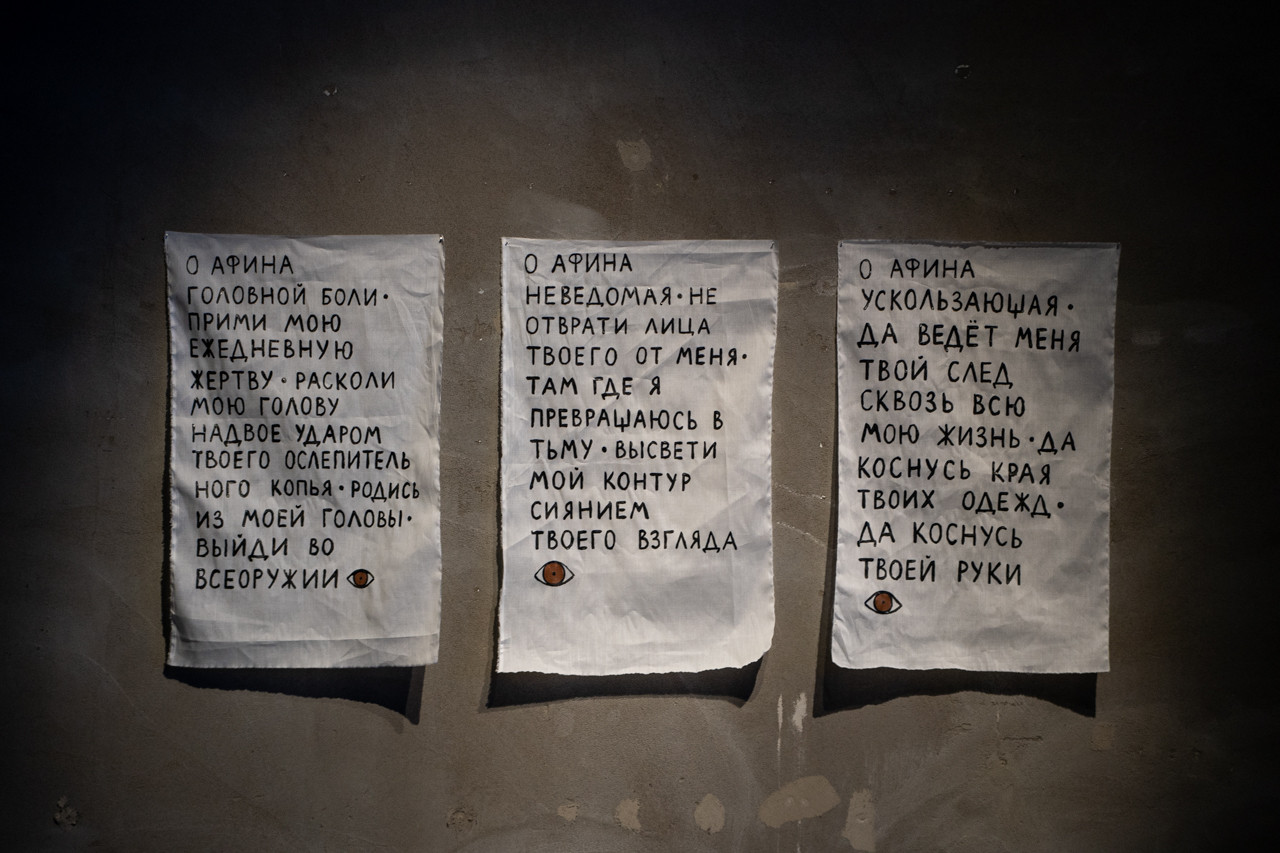 О АФИНА
ГОЛОВНОЙ БОЛИ·
ПРИМИ МОЮ
ЕЖЕДНЕВНУЮ
ЖЕРТВУ · РАСКОЛИ
МОЮ ГОЛОВУ
НАДВОЕ УДАРОМ
ТВОЕГО ОСЛЕПИТЕЛЬ
НОГО КОПЬЯ · РОДИСЬ
ИЗ МОЕЙ ГОЛОВЫ·
ВЫЙДИ ВО
ВСЕОРУЖИИ
О АФИНА
НЕВЕДОМАЯ · НЕ
ОТВРАТИ ЛИЦА
ТВОЕГО ОТ МЕНЯ·
ТАМ ГДЕ Я
ПРЕВРАЩАЮСЬ В
ТЬМУ · ВЫСВЕТИ
МОЙ КОНТУР
СИЯНИЕМ
ТВОЕГО ВЗГЛЯДА
О АФИНА
УСКОЛЬЗАЮЩАЯ ·
ДА ВЕДЁТ МЕНЯ
ТВОЙ СЛЕД
СКВОЗЬ ВСЮ
МОЮ ЖИЗНЬ · ДА
КОСНУСЬ КРАЯ
ТВОИХ ОДЕЖД·
ДА КОСНУСЬ
ТВОЕЙ РУКИ